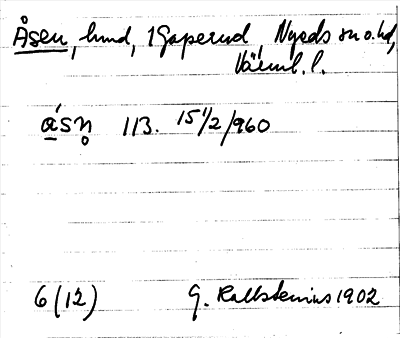 Åsen, hmd, 1 Gaperud Nyeds sn o. hd,
Värml. l.
ásn̥ 113. 15 1/2/960
6 (12) G. Kallstenius 1902